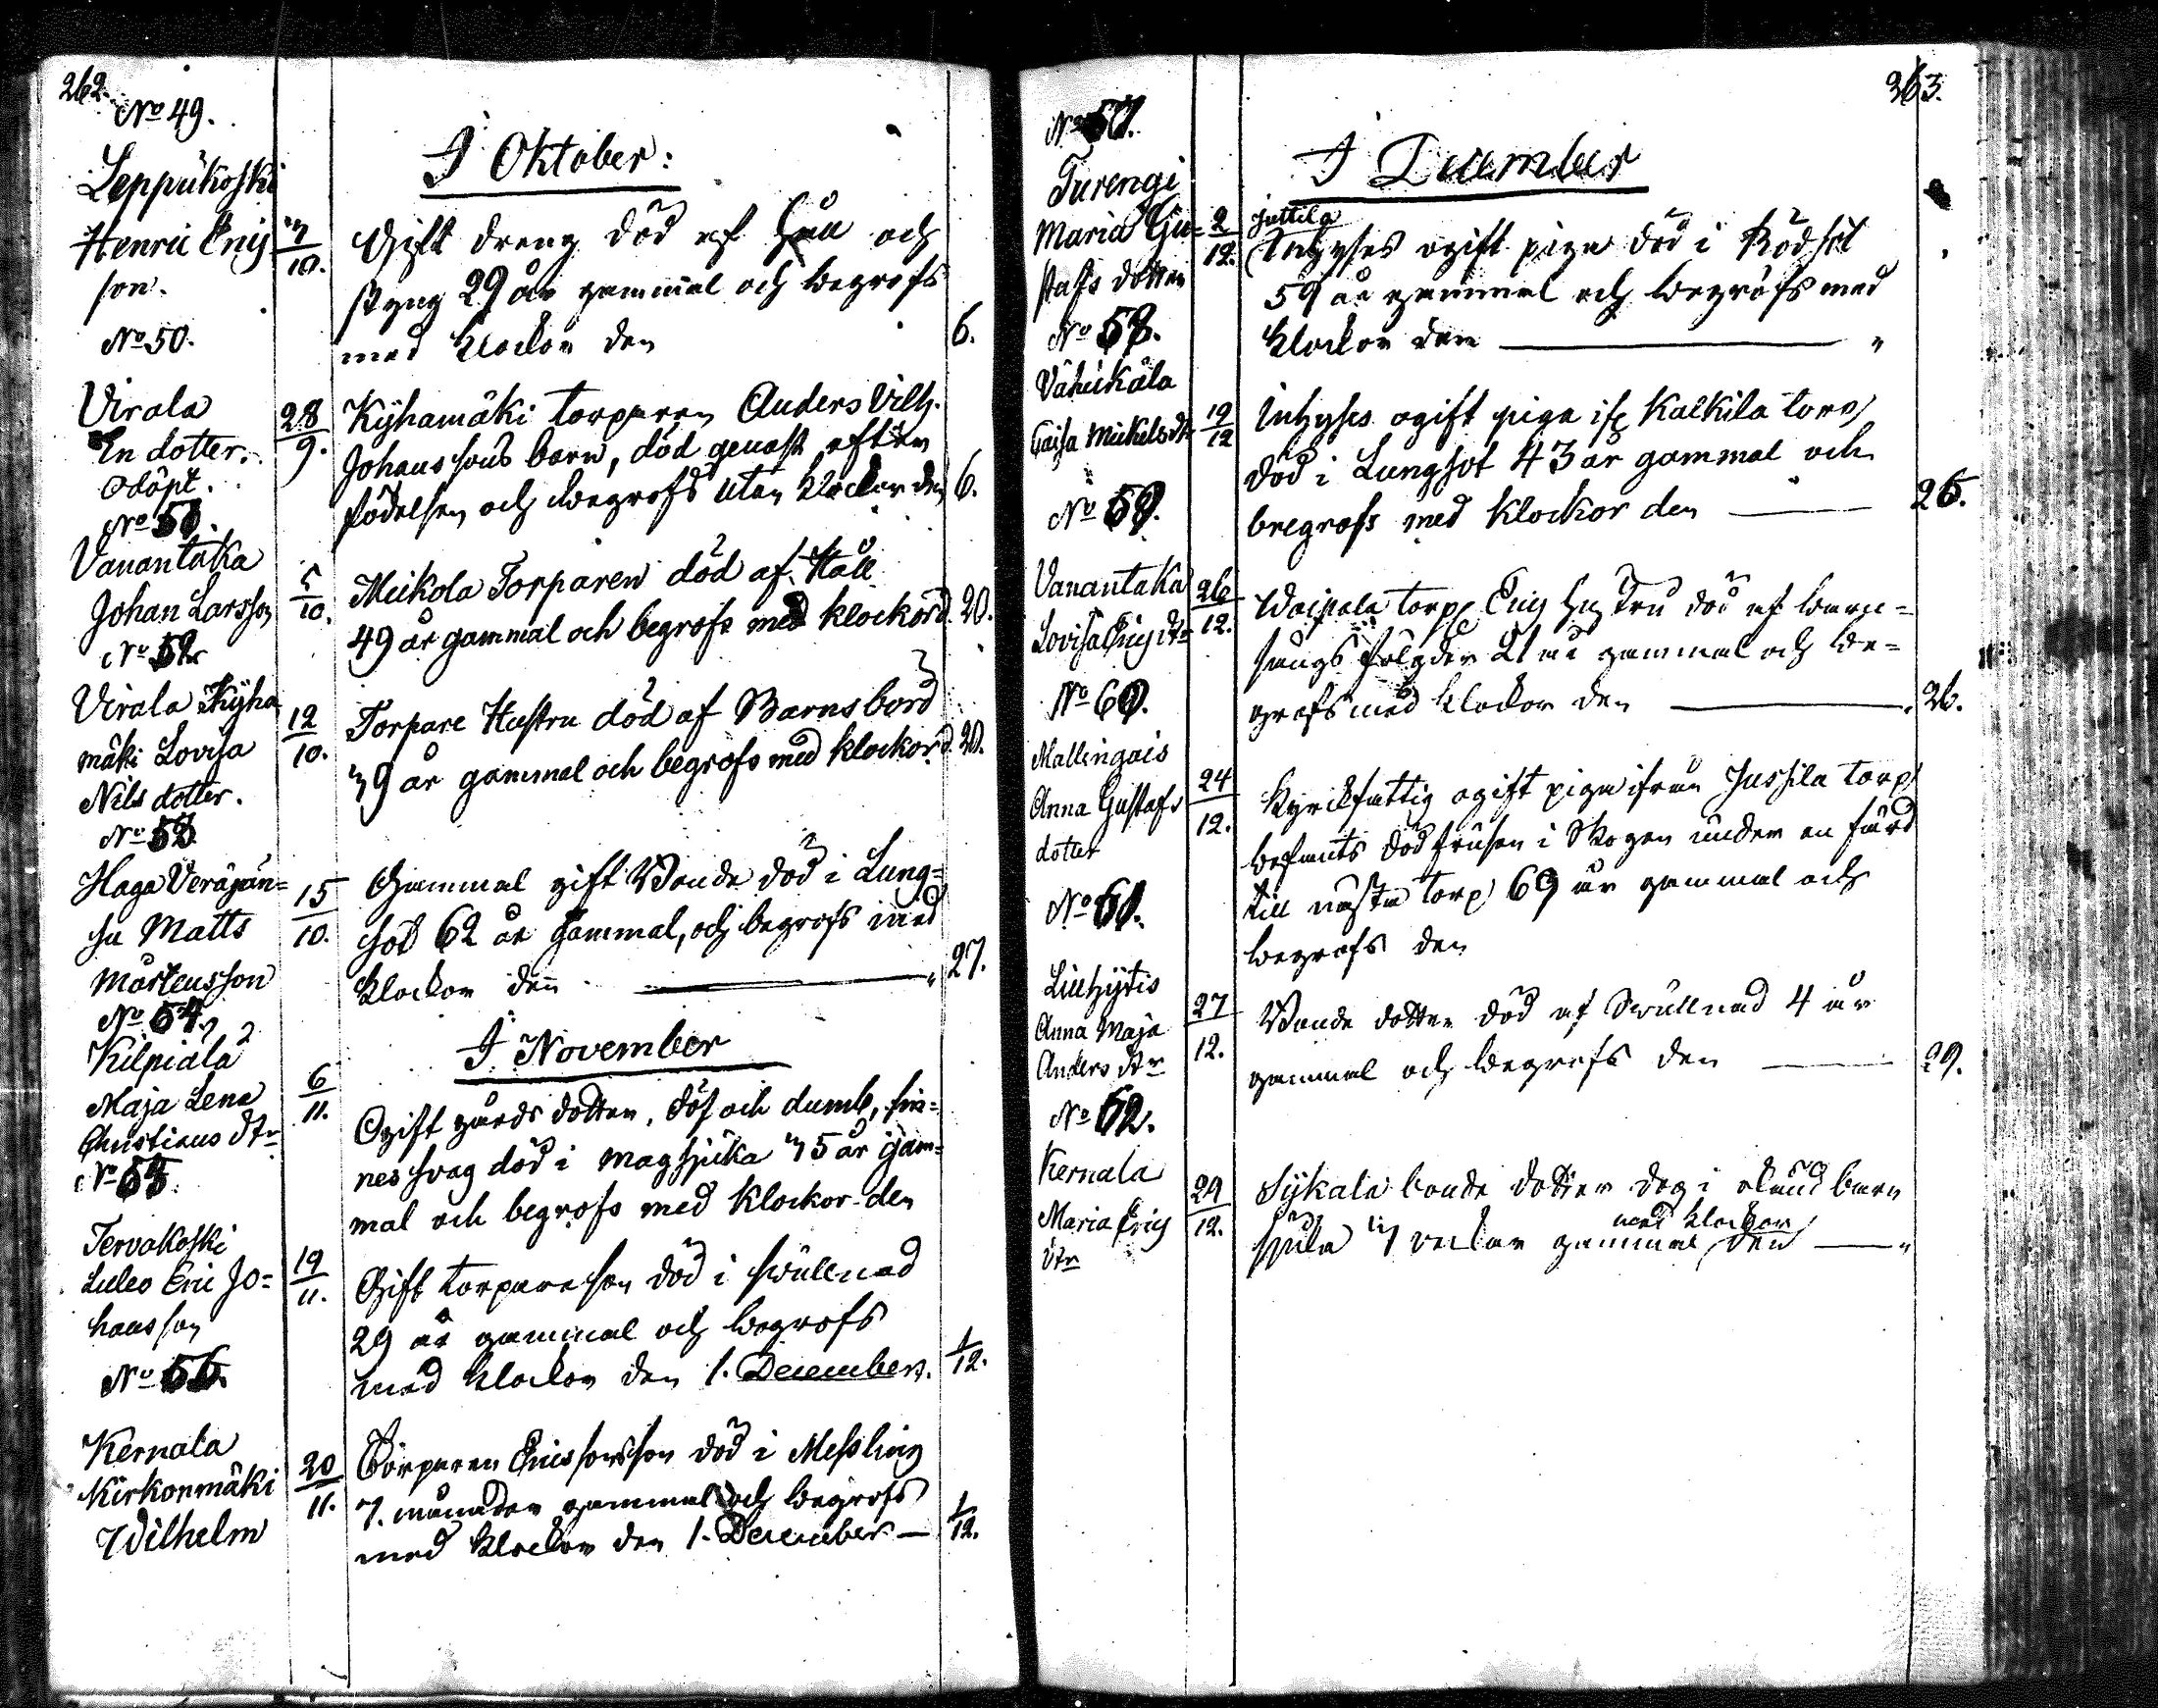 262.
No 49.
I Oktober:
Leppäkoski
Henric Erics
son.
7/10.
Gift dreng död af Håll och
styng 29 år gammal och begrofs
med klockor den 6.
No 50.
Virala
En dotter.
odöpt.
28/9.
Kÿhamäki torparen Anders Vilh.
Johanssons barn, död genast efter
födelsen och begrofs utan klockor den 6.
No 51.
Vanantaka
Johan Larsson
5/10.
Meikola Torparen död af Håll
49 år gammal och begrofs med klockor d. 20.
No 52
Virala Kÿha
mäki Lovisa
Nils dotter.
12/10.
Torpare Hustru död af Barnsbörd
39 år gammal och begrofs med klockor d. 20.
No 53
Haga Veräjän=
su Matts
Mårtensson
15/10.
Gammal gift Bonde död i Lung=
sot 62 år gammal, och begrofs med
klockor den 27.
No 54.
Kilpiälä
Maja Lena
Christians dtr
6/11.
I November
Ogift gårds dotter, döf och dumb, sin=
nes svag död i magsjuka 35 år gam=
mal och begrofs med klockor den
No 55.
Tervakoski
Luleo Eric Jo=
hansson
19/11.
Gift torpare son död i svullnad
29 år gammal och begrofs
med klockor den 1. December. 1/12.
No 56.
Kernala
Kirkonmäki
Wilhelm
20/11.
Torparen Ericssons son död i Messling
7. månader gammal och begrofs
med klockor den 1. December — 1/12.
263.
No 57.
I December
Turengi
Maria Gu=
stafs dotter
2/12.
Juttila
Inhyses ogift piga död i Rödsot
59 år gammal och begrofs med
klockor den — "
No 58.
Vähikälä
Caisa Mickelsdtr
19/12
Inhyses ogift piga ifr Kalkila torp
död i Lungsot 43 år gammal och
begrofs med klockor den — 26.
No 59.
Vanantaka
Lovisa Erics dtr
26/12.
torp Erics hustru död af barn=
sängs följder 21 år gammal och be=
grofs med klockor den — 26.
No 60.
Mallingais
Anna Gustafs
dotter
24/12.
Kyrckfattig ogift piga ifrån Jussila torp
befants död frusen i Skogen under en färd
till nästa torp 69 år gammal och
begrofs den
No 61.
Anna Maja
Anders dtr
27/12.
Bonde dotter död af Svullnad 4 år
gammal och begrofs den — 29.
No 62.
Kernala
Maria Erics
dtr
29/12.
Sÿkala bonde dotter dog i okänd barn
sjuka 7 veckor gammal med klockor den — "